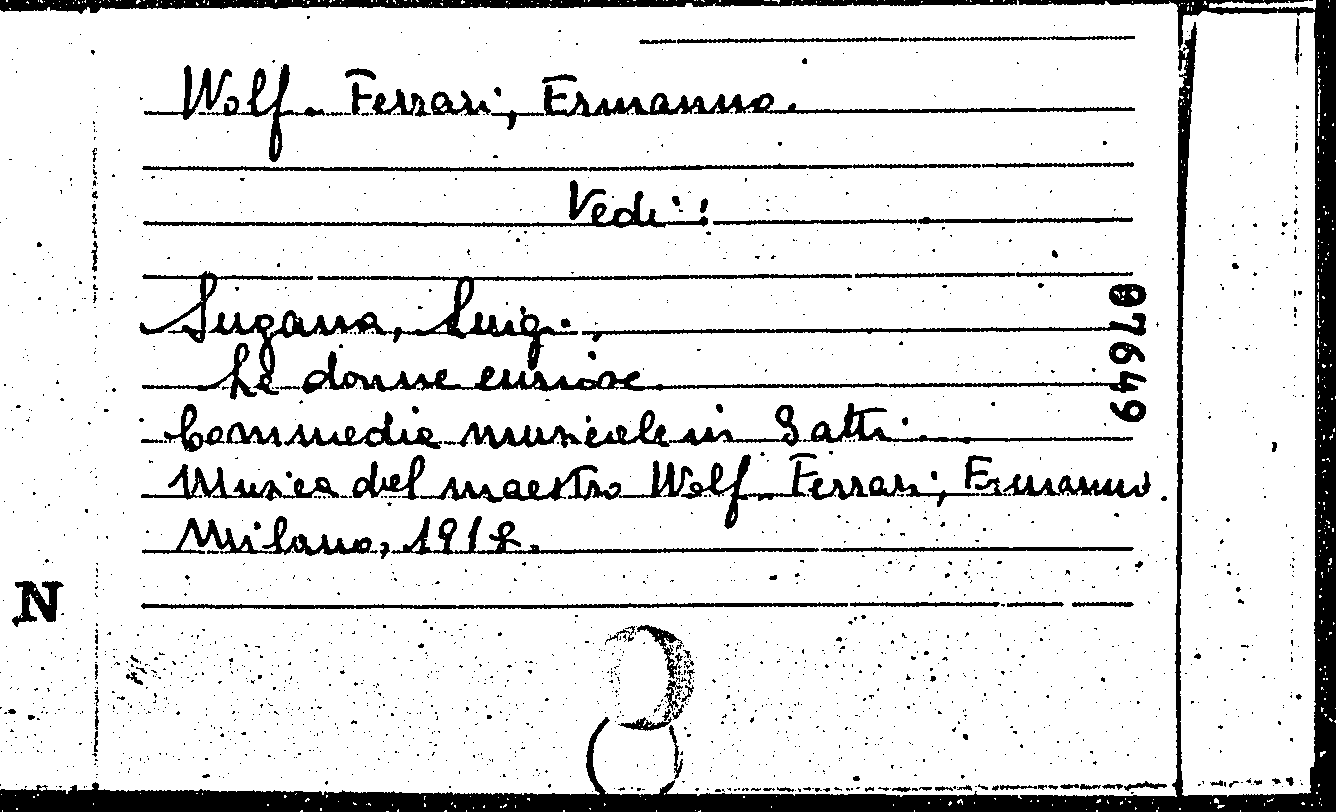 Wolf-Ferrari, Ermanno.
Vedi:
Sugana, Luigi.,
Le donne curiose.
Commedia musicale in 3 atti....
Musica del maestro Wolf-Ferrari, Ermanno.
Milano, 1912.
07649
N